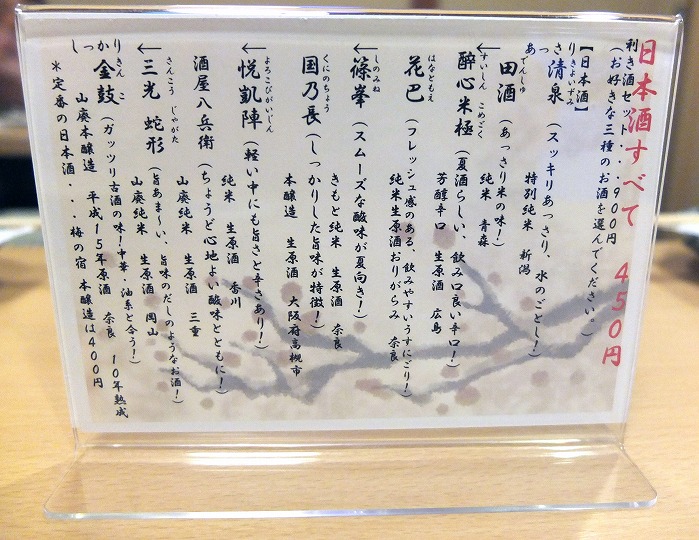 日本酒すべて 450円
利き酒セット・・・900円
(お好きな三種のお酒を選んでください。)
【日本酒】
りきよいずみ
清泉 (スッキリあっさり、水のごとし!)
特別純米 新潟
でんしゅ
田酒 (あっさり米の味!)
純米 青森
すいしん こめごく
酔心米極 (夏酒らしい、飲み口良い辛口!)
芳醇辛口 生原酒 広島
はなともえ
花巴 (フレッシュ感のある、飲みやすいうすにごり!)
純米生原酒おりがらみ 奈良
しのみね
篠峯 (スムーズな酸味が夏向き!)
きもと純米 生原酒 奈良
くにのちょう
国乃長 (しっかりした旨味が特徴!)
本醸造 生原酒 大阪府高槻市
よろこびがいじん
悦凱陣 (軽い中にも旨さと辛さあり!)
純米 生原酒 香川
酒屋八兵衛 (ちょうど心地よい酸味とともに!)
山廃純米 生原酒 三重
さんこう じゃがた
三光 蛇形 (旨あま〜い、旨味のだしのようなお酒!)
山廃純米 生原酒 岡山
きんこ
金鼓 (ガッツリ古酒の味!中華・油系と合う!)
山廃本醸造 平成15年原酒 奈良 10年熟成
*定番の日本酒・・・梅の宿 本醸造は400円
あっさ
り
しっか
り